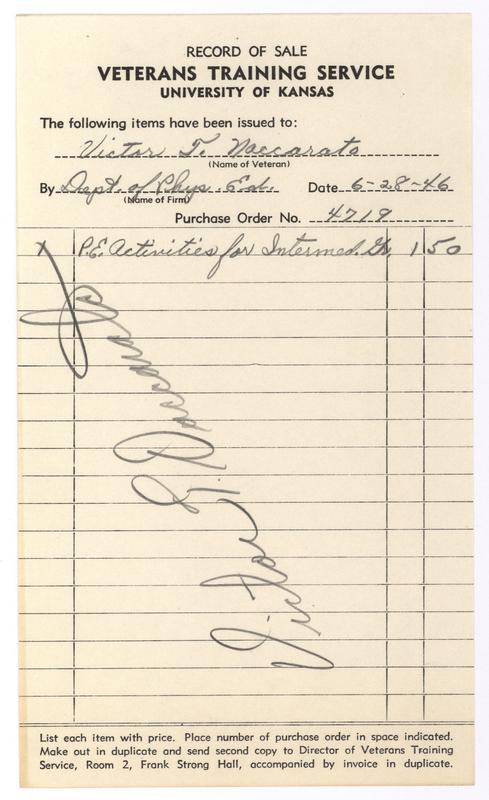 RECORD OF SALE
VETERANS TRAINING SERVICE
UNIVERSITY OF KANSAS
The following items have been issued to:
Victor T. Naccarato
(Name of Veteran)
By Dept. of Phys. Ed. Date 6-28-46
(Name of Firm)
Purchase Order No. 4719
x P.E. Activities for Intermed. Gr. 1 50
Victor T. Naccarato
List each item with price. Place number of purchase order in space indicated.
Make out in duplicate and send second copy to Director of Veterans Training
Service, Room 2, Frank Strong Hall, accompanied by invoice in duplicate.